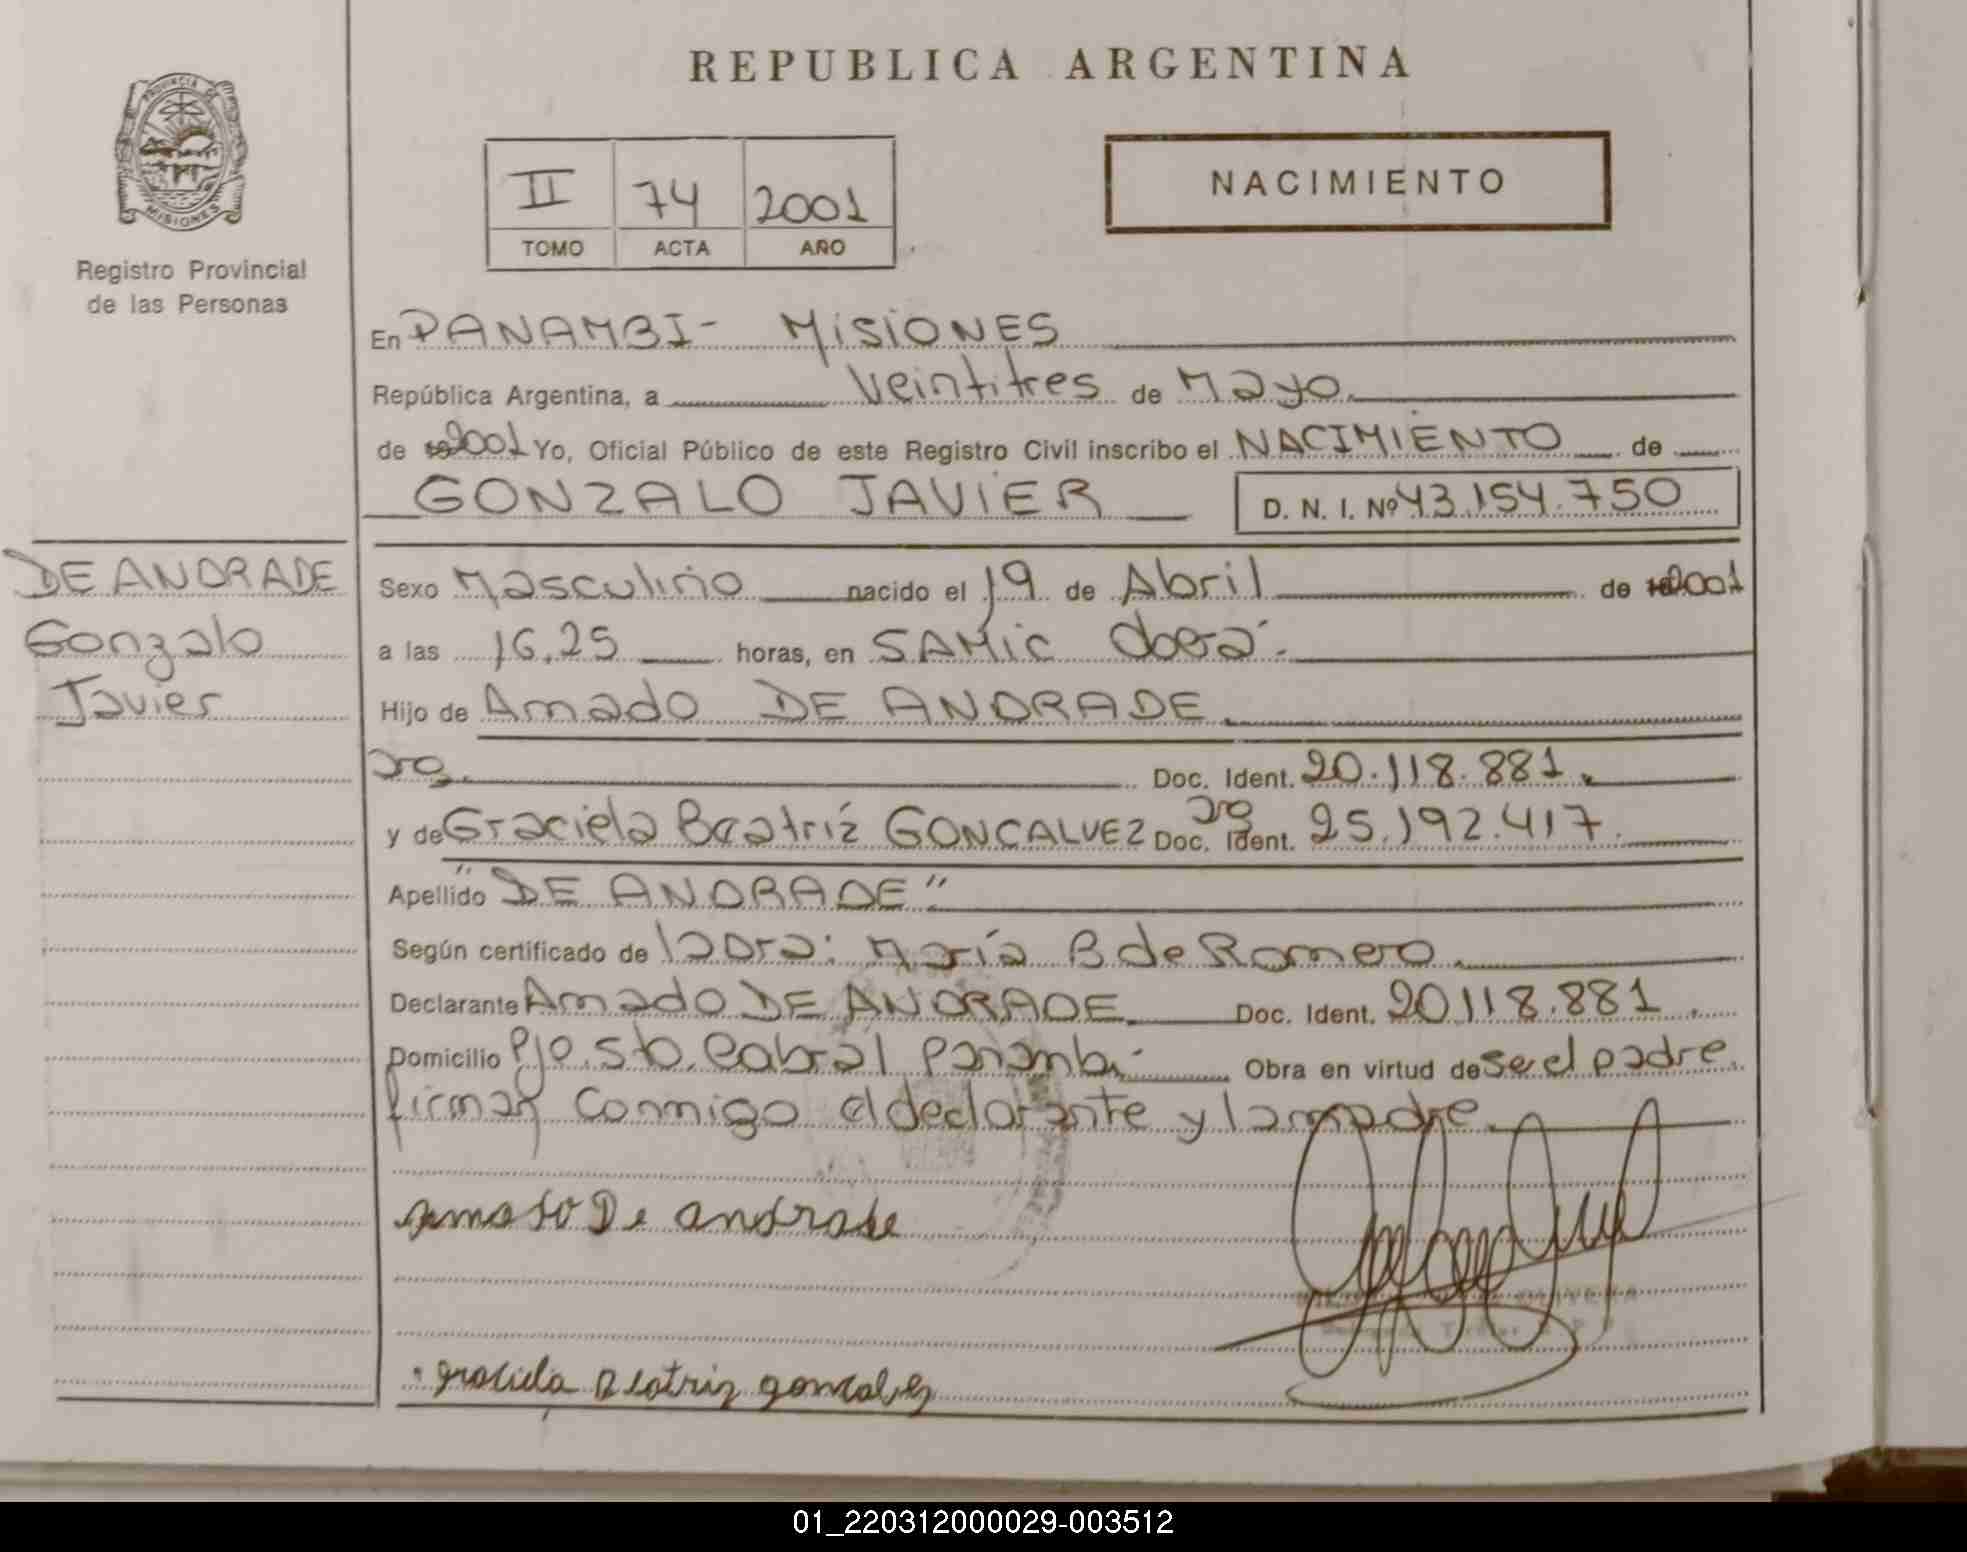 REPUBLICA ARGENTINA
PROVINCIA DE
MISIONES
Registro Provincial
de las Personas
II 74 2001
TOMO ACTA AÑO
NACIMIENTO
En PANAMBI - MISIONES
República Argentina, a Veintitres de Mayo.
de 2001 Yo, Oficial Público de este Registro Civil inscribo el NACIMIENTO de
GONZALO JAVIER D. N. I. Nº 43.154.750
DE ANDRADE
Gonzalo
Javier
Sexo Masculino nacido el 19 de Abril de 2001
a las 16,25 horas, en SAMIC Obera.
Hijo de Amado DE ANDRADE
arg. Doc. Ident. 20.118.881.
y de Graciela Beatríz GONCALVEZ arg Doc. Ident. 25.192.417.
Apellido "DE ANDRADE"
Según certificado de la Dra: María B de Romero.
Declarante Amado DE ANDRADE. Doc. Ident. 20.118.881.
Domicilio Pje. Sto. Cabral Panambi. Obra en virtud de ser el padre.
firman conmigo el declarante y la madre.
amado De andrade
OLIVERA
graciela Beatriz goncalvez
01_220312000029-003512